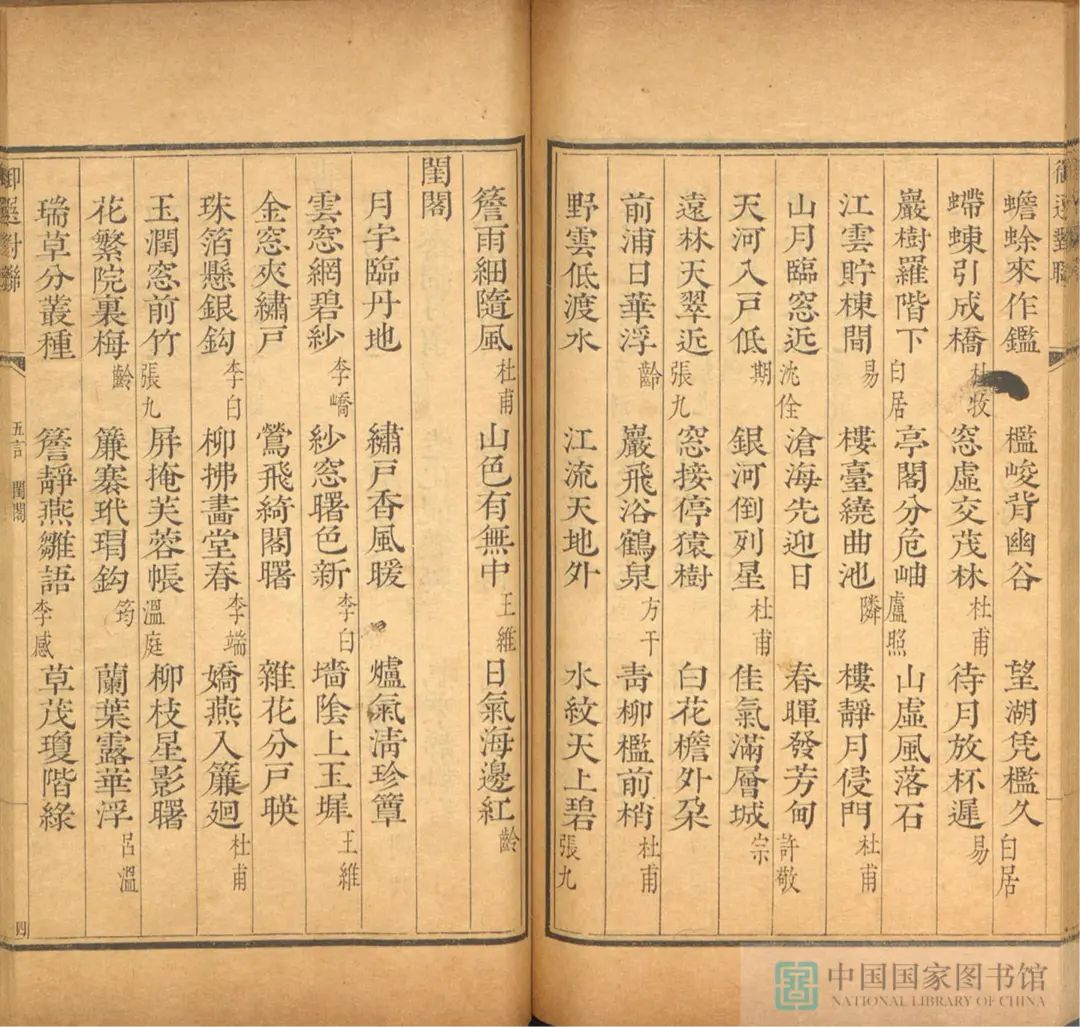 御選對聯
蟾蜍來作鑑 檻峻背幽谷 望湖凭檻久 白居
螮蝀引成橋 杜牧 窓虛交茂林 杜甫 待月放杯遲 易
巖樹羅階下 白居 亭閣分危岫 盧照 山虛風落石
江雲貯棟間 易 樓臺繞曲池 隣 樓靜月侵門 杜甫
山月臨窓近 沈佺 滄海先迎日 春暉發芳甸 許敬
天河入戶低 期 銀河倒列星 杜甫 佳氣滿層城 宗
遠林天翠近 張九 窓接停猿樹 白花檐外朶
前浦日華浮 齡 巖飛浴鶴泉 方干 靑柳檻前梢 杜甫
野雲低渡水 江流天地外 水紋天上碧 張九
簷雨細隨風 杜甫 山色有無中 王維 日氣海邊紅 齡
閨閣
月宇臨丹地 繡戶香風暖 爐氣淸珍簟
雲窓網碧紗 李嶠 紗窓曙色新 李白 墻陰上玉墀 王維
金窓夾繡戶 鶯飛綺閣曙 雜花分戶暎
珠箔懸銀鈎 李白 柳拂畵堂春 李端 嬌燕入簾廻 杜甫
玉潤窓前竹 張九 屏掩芙蓉帳 溫庭 柳枝星影曙
花繁院裏梅 齡 簾褰玳瑁鈎 筠 蘭葉露華浮 呂溫
瑞草分叢種 簷靜燕雛語 李感 草茂瓊階綠
御選對聯 五言 閨閣 四
中国国家图书馆
NATIONAL LIBRARY OF CHINA